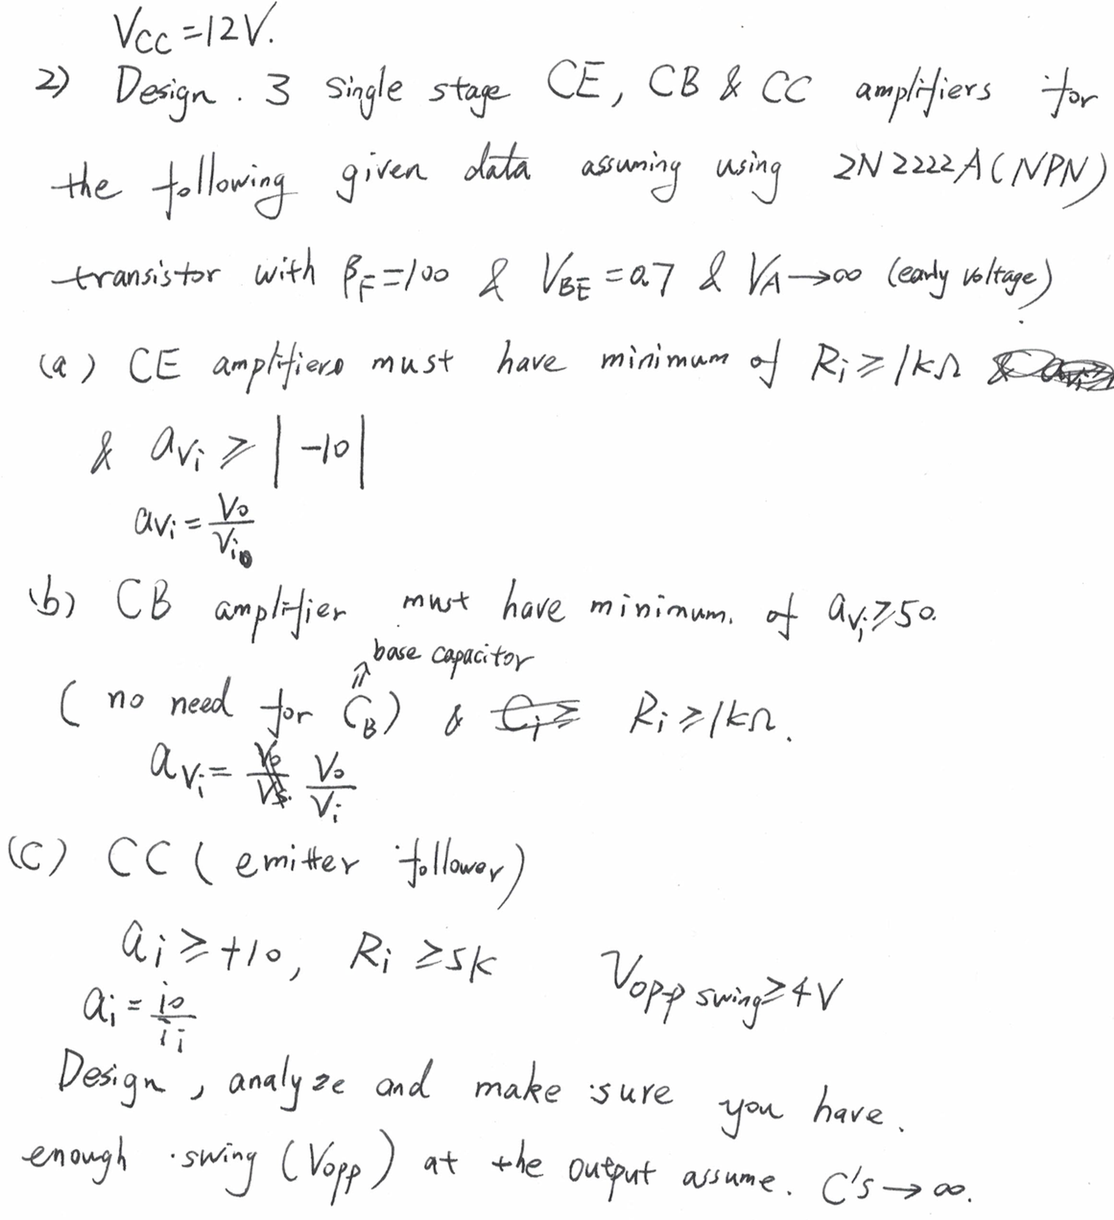 VCC=12V.
2) Design. 3 single stage CE, CB & CC amplifiers for
the following given data assuming using 2N2222A(NPN)
transistor with βF=100 & VBE=0.7 & VA→∞ (early voltage)
(a) CE amplifiers must have minimum of Ri≥1kΩ
& avi≥|-10|
avi=Vo/Vi
(b) CB amplifier must have minimum. of avi≥50.
base capacitor
(no need for CB) & Ri≥1kΩ.
avi= Vo/Vi
(C) CC (emitter follower)
ai≥+10, Ri≥5K Vopp swing≥4V
ai=io/ii
Design, analyze and make sure you have.
enough swing (Vopp) at the output assume. C's→∞.